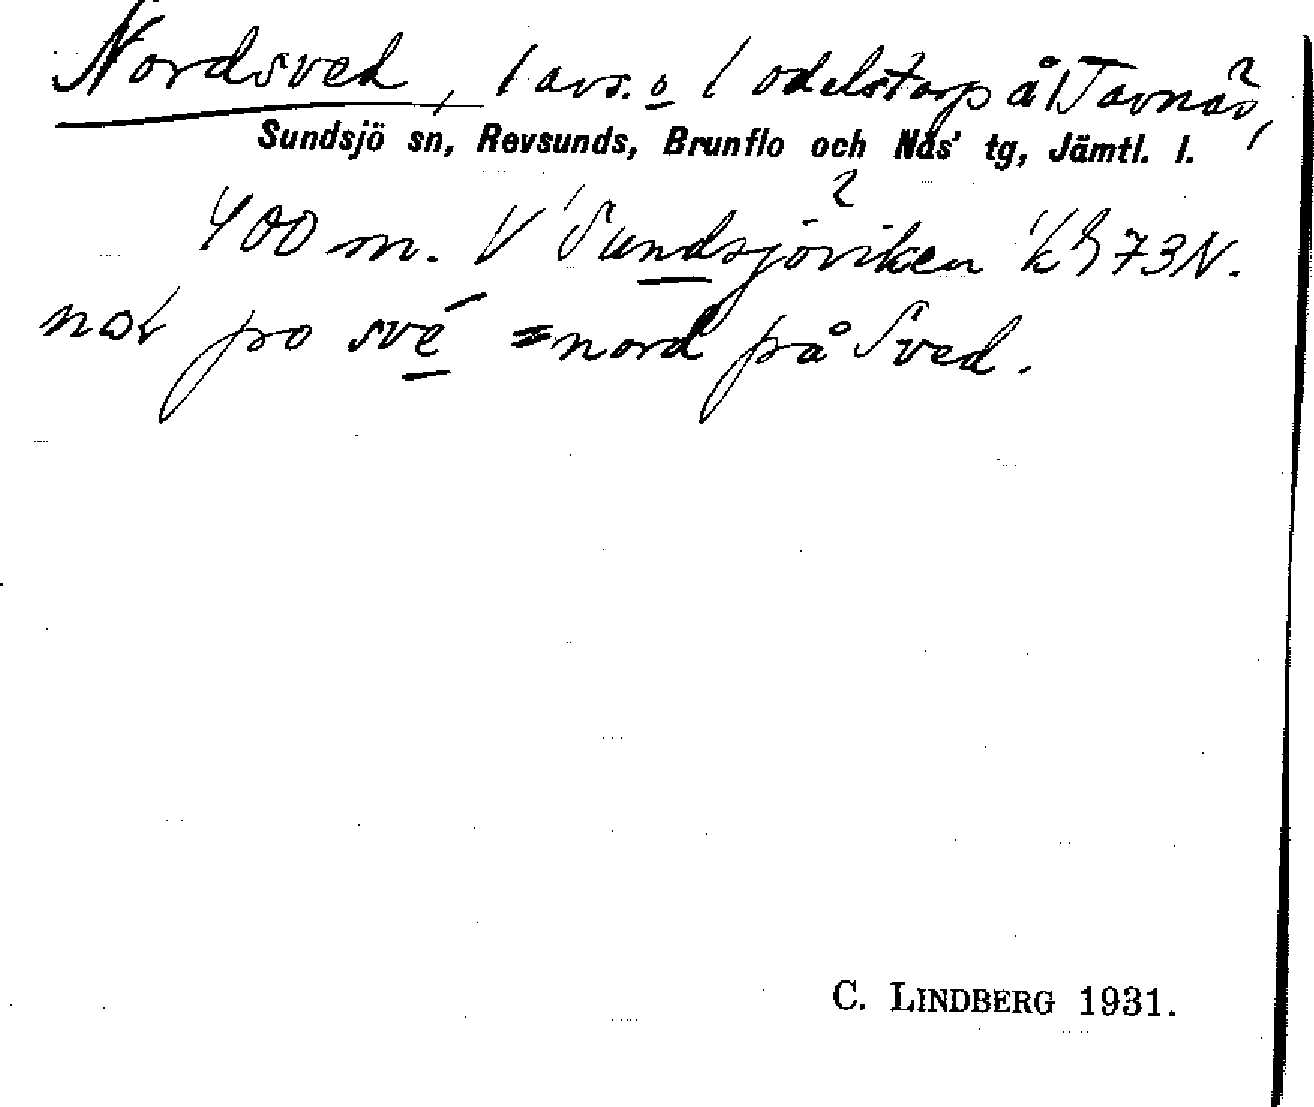 Nordsved, 1 avs. o 1 odelstorp å Tavnäs,
Sundsjö sn, Revsunds, Brunflo och Näs' tg, Jämtl. l.
400 m. V Sundsjöviken 73 N.
pro své = nord på Sved.
C. LINDBERG 1931.